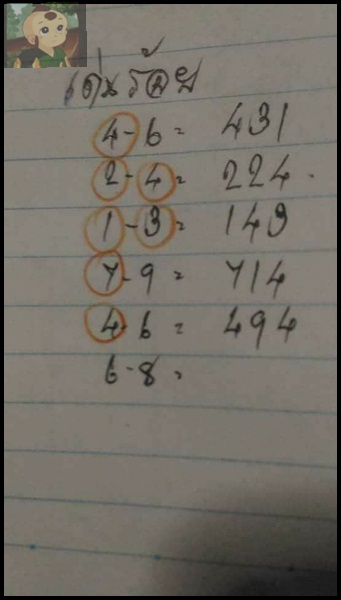 เด่นร้อย
4-6= 431
2-4= 224.
1-3= 143
7-9= 714
4-6= 494
6-8=